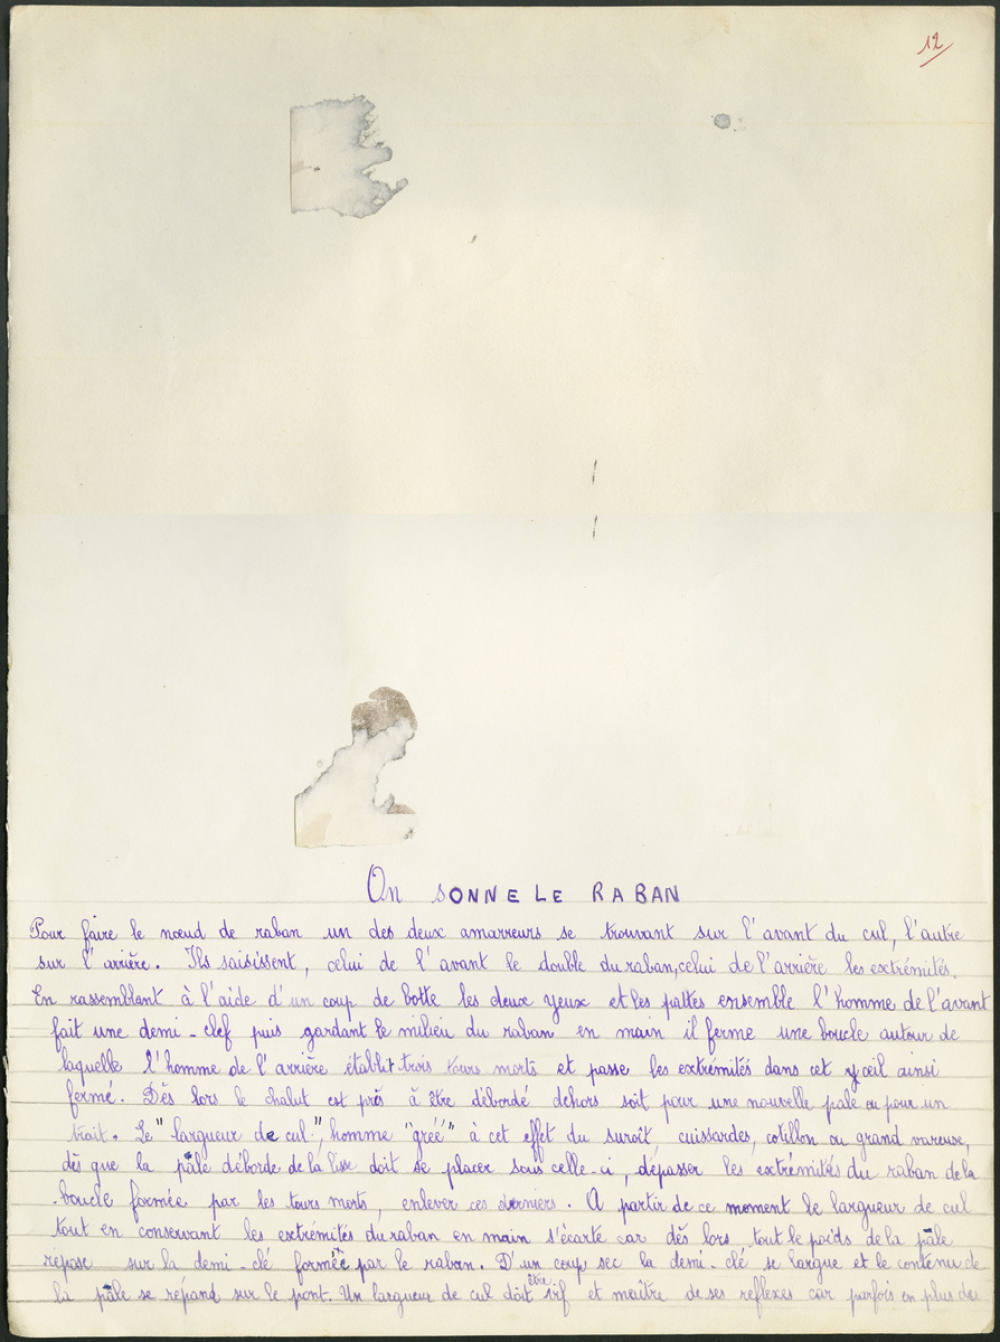 12
On SONNE LE RABAN
Pour faire le nœud de raban un des deux amarreurs se trouvant sur l'avant du cul, l'autre
sur l'arrière. Ils saisissent, celui de l'avant le double du raban, celui de l'arrière les extrémités.
En rassemblant à l'aide d'un coup de botte les deux yeux et les pattes ensemble l'homme de l'avant
fait une demi-clef puis gardant le milieu du raban en main il ferme une boucle autour de
laquelle l'homme de l'arrière établit trois tours morts et passe les extrémités dans cet œil ainsi
fermé. Dès lors le chalut est près à être débordé dehors soit pour une nouvelle pâle ou pour un
trait. Le "largueur de cul", homme "gréé" à cet effet du suroît cuissardes, cotillon ou grand vareuse,
dès que la pâle déborde de la lisse doit se placer sous celle-ci, dépasser les extrémités du raban de la
boucle formée par les tours morts, enlever ces derniers. A partir de ce moment le largueur de cul
tout en conservant les extrémités du raban en main s'écarte car dès lors tout le poids de la pâle
repose sur la demi-clé formée par le raban. D'un coup sec la demi-clé se largue et le contenu de
la pâle se répand sur le pont. Un largueur de cul doit être vif et maître de ses reflexes car parfois en plus de